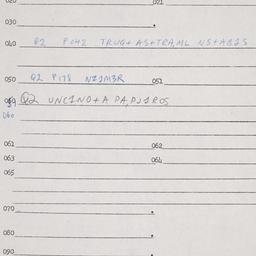 020 021
030
040 Q2 P042 TRUG+ AS+TRA,ML NS+ABIS
050 Q2 P178 NZIM3R 051
059 Q2 UNCINO+A PA,PJIROS
060
061 062
063 064
065
070
080
090